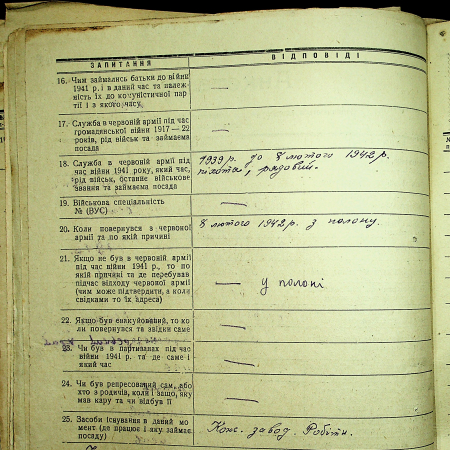 ЗАПИТАННЯ
ВІДПОВІДІ
16. Чим займались батьки до війни
1941 р. і в даний час та належ-
ність їх до комуністичної пар-
тії і з якого часу
—
17. Служба в червоній армії під час
громадянської війни 1917—22
років, рід військ та займаєма
посада
—
18. Служба в червоній армії під
час війни 1941 року, який час,
рід військ, останнє військове
звання та займаєма посада
1939 р. до 8 лютого 1942 р.
піхота, рядовій.
19. Військова спеціальність
№ (ВУС)
—
20. Коли повернувся з червоної
армії та по якій причині
8 лютого 1942 р. з полону.
21. Якщо не був в червоній армії
під час війни 1941 р., то по
якій причині та де перебував
підчас відходу червоної армії
(чим може підтвердити, а коли
свідками то їх адреса)
— у полоні
22. Якщо був евакуйований, то ко-
ли повернувся та звідки саме
—
23. Чи був в партизанах під час
війни 1941 р. та де саме і
який час
—
24. Чи був репресований сам, або
хто з родичів, коли і защо, яку
мав кару та чи відбув її
—
25. Засоби існування в даний мо-
мент (де працює і яку займає
посаду)
Конс. завод. Робітн.